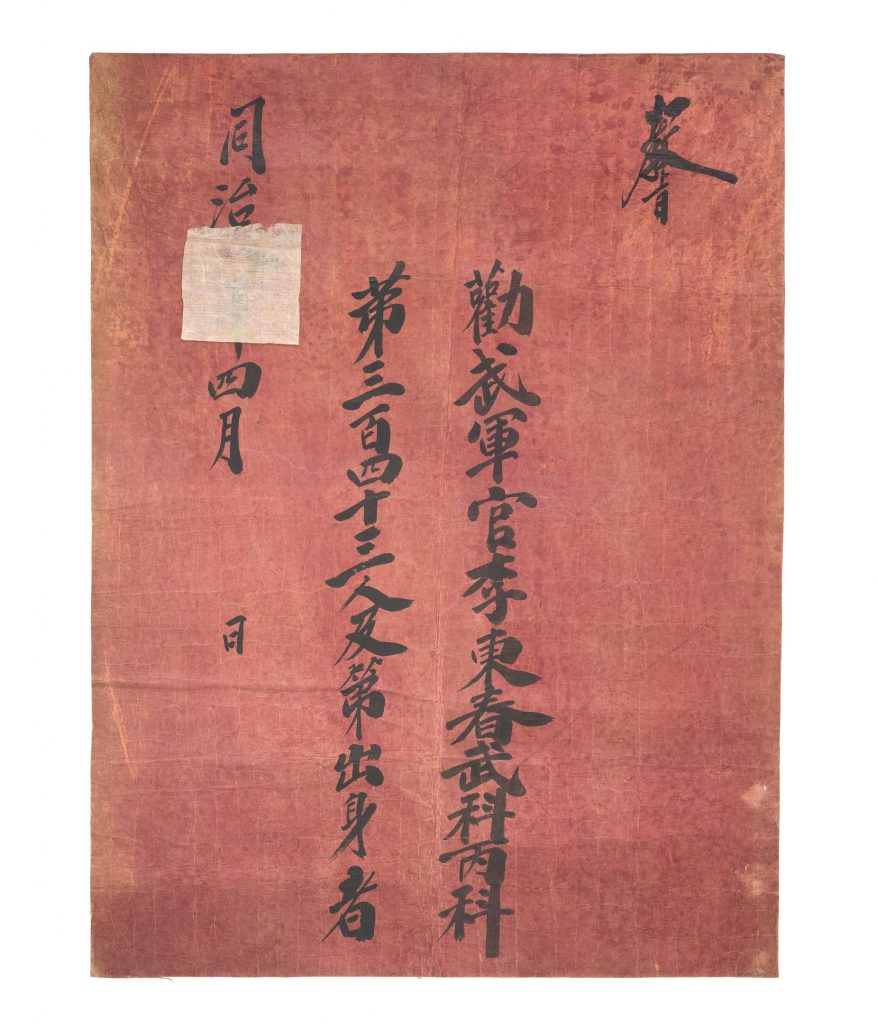 敎旨
勸武軍官李東春武科丙科
苐三百四十三人及第出身者
同治 四月 日